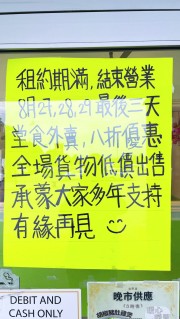 租約期滿，結束營業
8月27,28,29最後三天
堂食外賣，八折優惠
全場貨物低價出售
承蒙大家多年支持
有緣再見
DEBIT AND
CASH ONLY
晚市供應